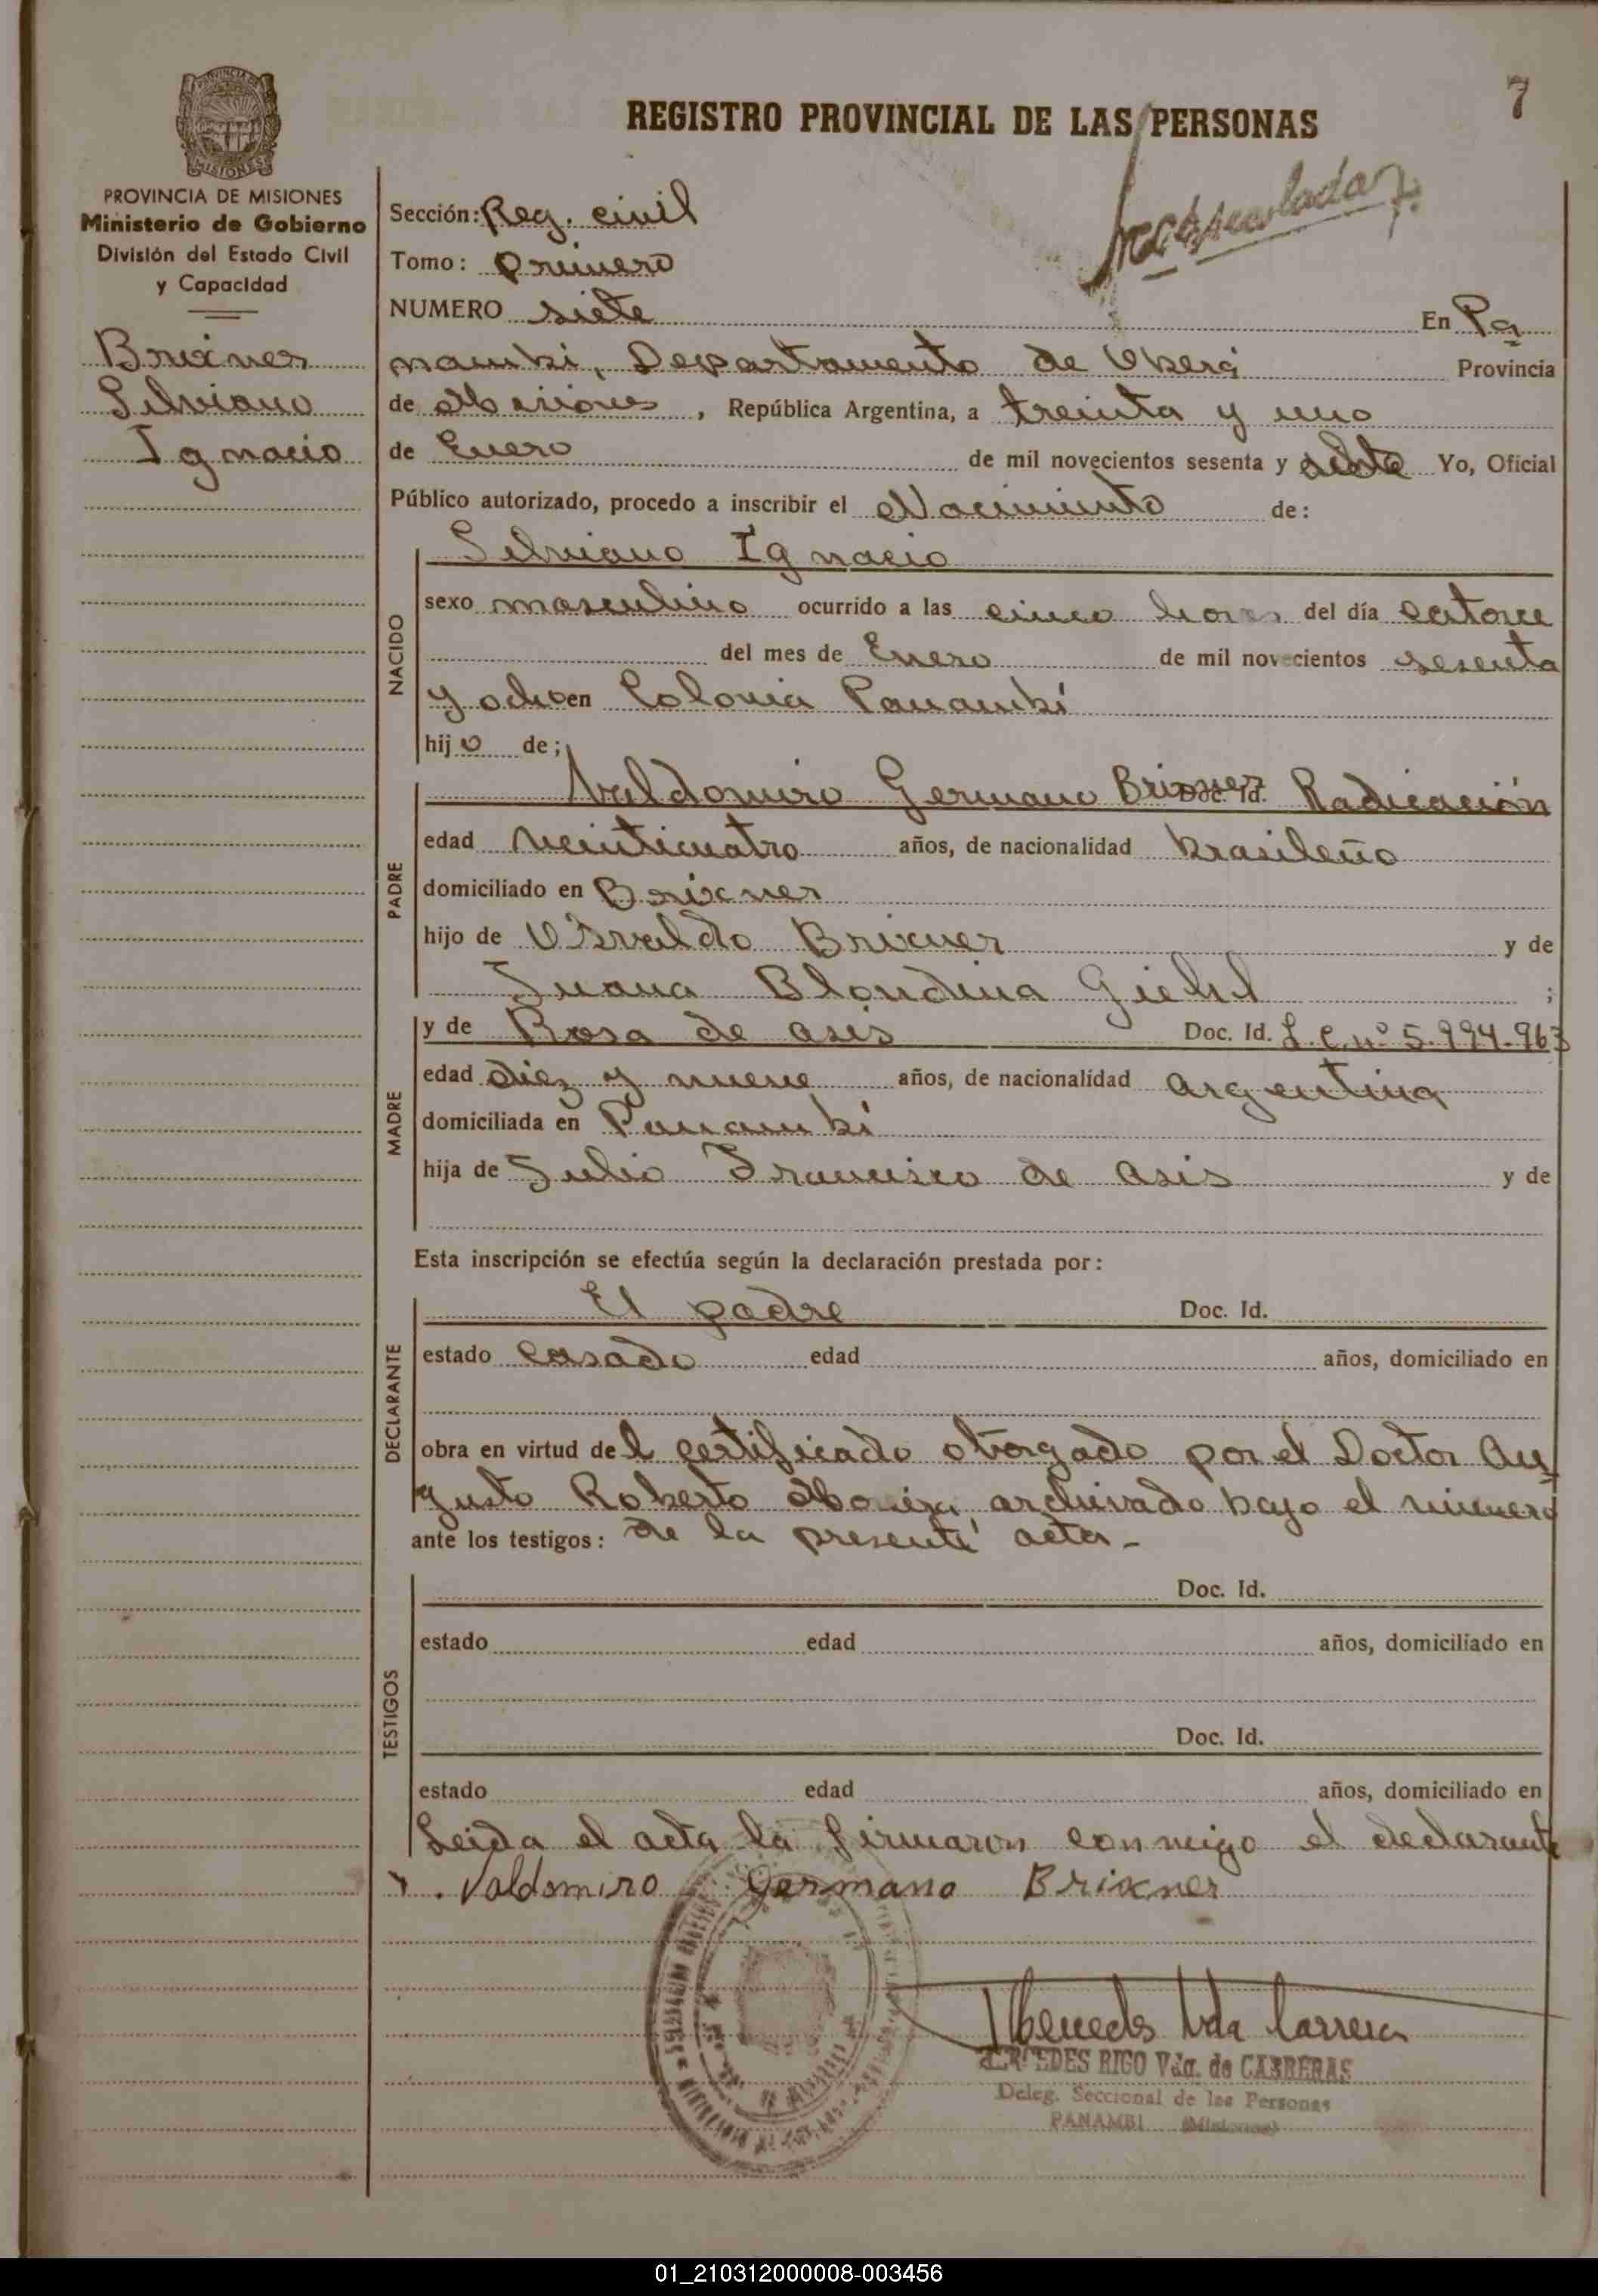 7
REGISTRO PROVINCIAL DE LAS PERSONAS
PROVINCIA DE MISIONES
Ministerio de Gobierno
División del Estado Civil
y Capacidad
Brixner
Silviano
Ignacio
Sección: Reg. civil
Tomo: Primero
NUMERO siete En Pa
nambí, Departamento de Oberá Provincia
de Misiones, República Argentina, a treinta y uno
de Enero de mil novecientos sesenta y Yo, Oficial
Público autorizado, procedo a inscribir el Nacimiento de:
NACIDO
Silviano Ignacio
sexo masculino ocurrido a las cinco horas del día catorce
del mes de Enero de mil novecientos sesenta
y ocho en Colonia Panambí
hijo de;
PADRE
Valdomiro Germano Brixner Doc. Id. Radicación
edad veinticuatro años, de nacionalidad brasileño
domiciliado en Brixner
hijo de Osvaldo Brixner y de
Juana Blondina Giehl ;
MADRE
y de Rosa de asis Doc. Id. L.C. nº 5.994.963
edad diez y nueve años, de nacionalidad argentina
domiciliada en Panambí
hija de Julio Francisco de asis y de
Esta inscripción se efectúa según la declaración prestada por:
DECLARANTE
El padre Doc. Id.
estado casado edad años, domiciliado en
obra en virtud del certificado otorgado por el Doctor Au
gusto Roberto archivado bajo el número
ante los testigos: de la presente acta-
TESTIGOS
Doc. Id.
estado edad años, domiciliado en
Doc. Id.
estado edad años, domiciliado en
Leida el acta la firmaron conmigo el declarante
Valdomiro Germano Brixner
Mercedes Vda Carrera
MERCEDES RIGO Vda. de CABRERAS
Deleg. Seccional de las Personas
PANAMBI (Misiones)
01_210312000008-003456